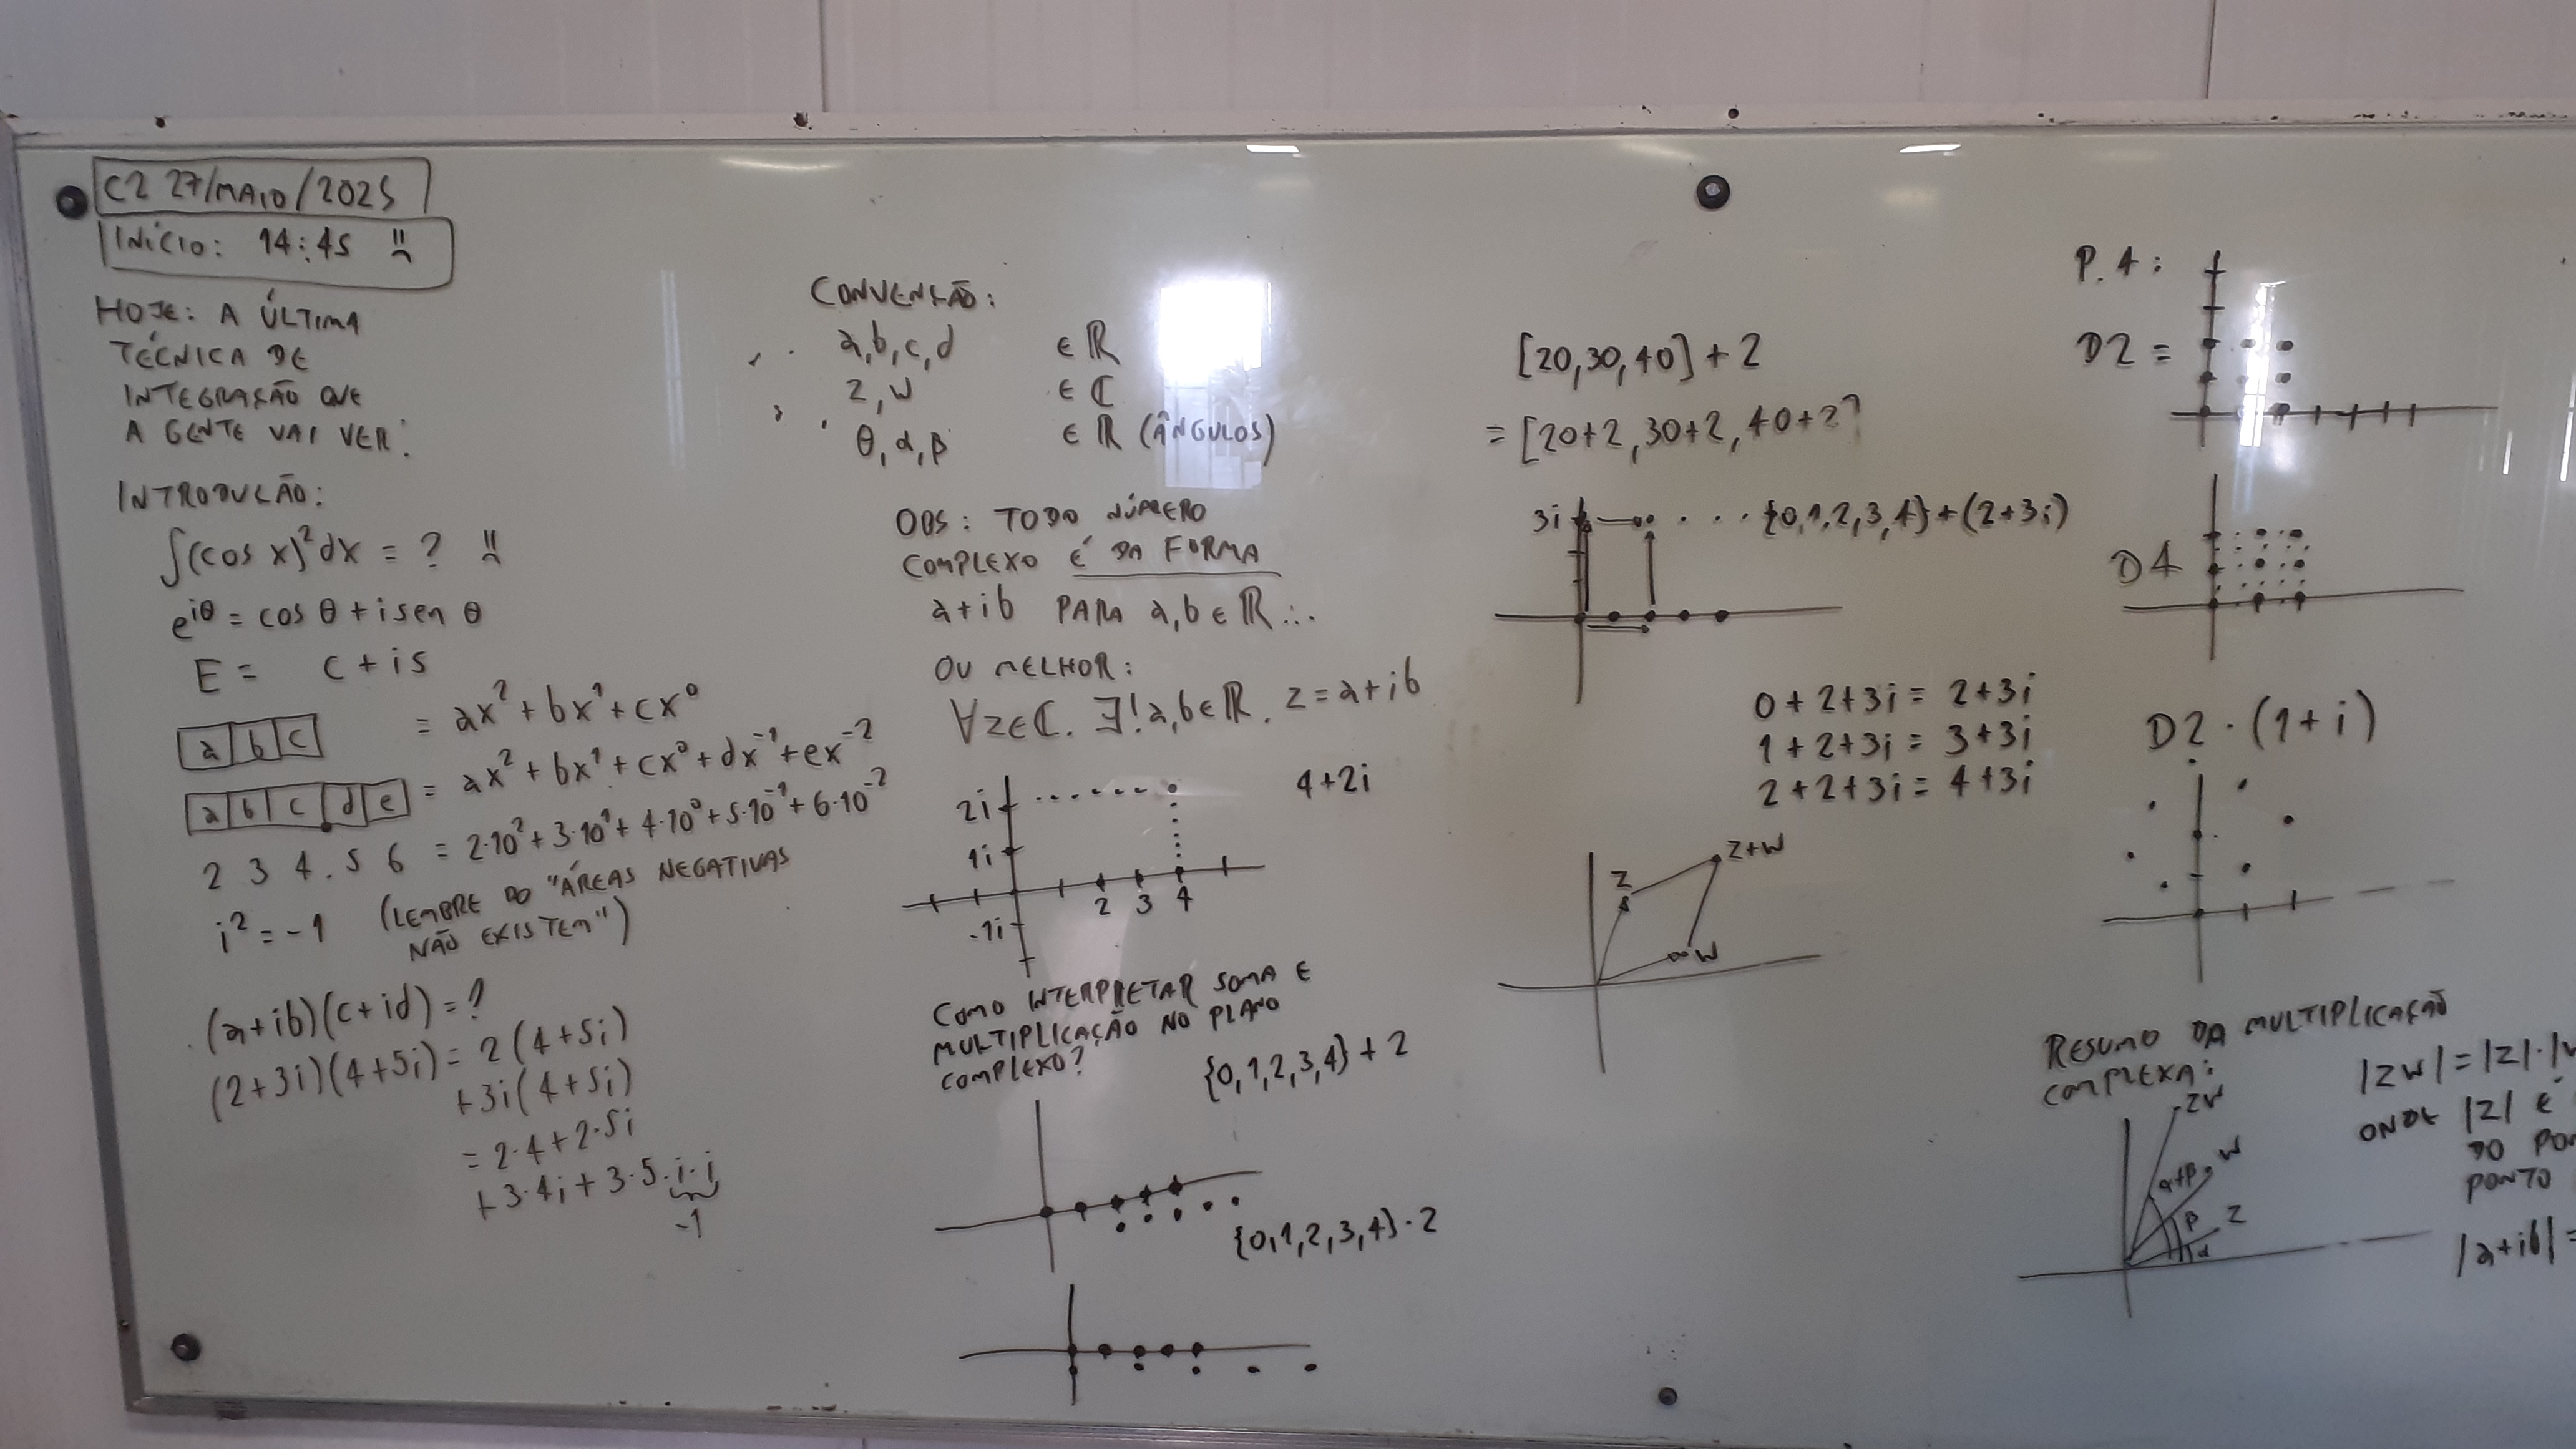 C2 27/MAIO/2025
INÍCIO: 14:45
HOJE: A ÚLTIMA
TÉCNICA DE
INTEGRAÇÃO QUE
A GENTE VAI VER!
INTRODUÇÃO:
∫(cos x)²dx = ?
e^{iθ} = cos θ + i sen θ
E = c + is
a b c = ax² + bx¹ + cx⁰
a b c d e = ax² + bx¹ + cx⁰ + dx⁻¹ + ex⁻²
2 3 4 . 5 6 = 2·10² + 3·10¹ + 4·10⁰ + 5·10⁻¹ + 6·10⁻²
i² = -1 (LEMBRE DO "ÁREAS NEGATIVAS
NÃO EXISTEM")
(a+ib)(c+id) = ?
(2+3i)(4+5i) = 2(4+5i)
+3i(4+5i)
= 2·4 + 2·5i
+3·4i + 3·5·i·i
-1
CONVENÇÃO:
a,b,c,d ∈ ℝ
z,w ∈ ℂ
θ,α,β ∈ ℝ (ÂNGULOS)
OBS: TODO NÚMERO
COMPLEXO É DA FORMA
a+ib PARA a,b ∈ ℝ ...
OU MELHOR:
∀z∈ℂ. ∃!a,b∈ℝ. z = a+ib
2i
4+2i
1i
2 3 4
-1i
COMO INTERPRETAR SOMA E
MULTIPLICAÇÃO NO PLANO
COMPLEXO?
{0,1,2,3,4} + 2
{0,1,2,3,4} · 2
[20,30,40] + 2
= [20+2,30+2,40+2]
3i {0,1,2,3,4} + (2+3i)
0+2+3i = 2+3i
1+2+3i = 3+3i
2+2+3i = 4+3i
z
z+w
w
P.4:
D2 =
D4
D2 · (1+i)
RESUMO DA MULTIPLICAÇÃO
COMPLEXA:
|zw| = |z|·|w
ONDE |z| É
DO
PONTO
|a+ib| =
zw
w
α+β
β
z
α